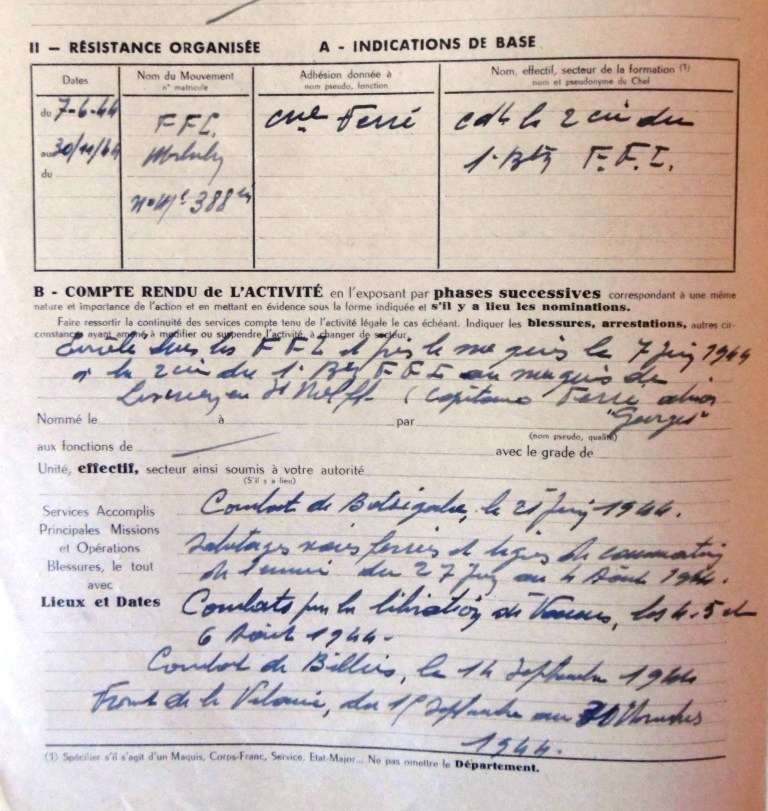 II — RÉSISTANCE ORGANISÉE A - INDICATIONS DE BASE
Dates
Nom du Mouvement
n° matricule
Adhésion donnée à
nom pseudo, fonction
Nom, effectif, secteur de la formation (1)
nom et pseudonyme du Chef
du 7-6-44
au 30/11/44
du
F F I.
Morbihan
cne Ferré
1er Btn F.F.I.
B - COMPTE RENDU de L'ACTIVITÉ en l'exposant par phases successives correspondant à une même
nature et importance de l'action et en mettant en évidence sous la forme indiquée et s'il y a lieu les nominations.
Faire ressortir la continuité des services compte tenu de l'activité légale le cas échéant. Indiquer les blessures, arrestations, autres cir-
constances ayant amené à modifier ou suspendre l'activité, à changer de secteur.
dans les F F I et pris le maquis le 7 Juin 1944
à la 2 cie du 1er Btn F F I au maquis de
(Capitaine Ferré alias
"Georges"
Nommé le à par
(nom pseudo, qualité)
aux fonctions de avec le grade de
Unité, effectif, secteur ainsi soumis à votre autorité
(S'il y a lieu)
Services Accomplis
Principales Missions
et Opérations
Blessures, le tout
avec
Lieux et Dates
Combat de Botségalo, le 21 Juin 1944.
Sabotages voies ferrées et lignes de communication
de l'ennemi du 27 Juin au 4 Août 1944.
Combats pour la libération de Vannes, les 4-5 et
6 Août 1944.
Combat de Billiers, le 14 Septembre 1944
Front de la Vilaine, du 15 Septembre au 30 Novembre
1944.
(1) Spécifier s'il s'agit d'un Maquis, Corps-Franc, Service, Etat-Major... Ne pas omettre le Département.